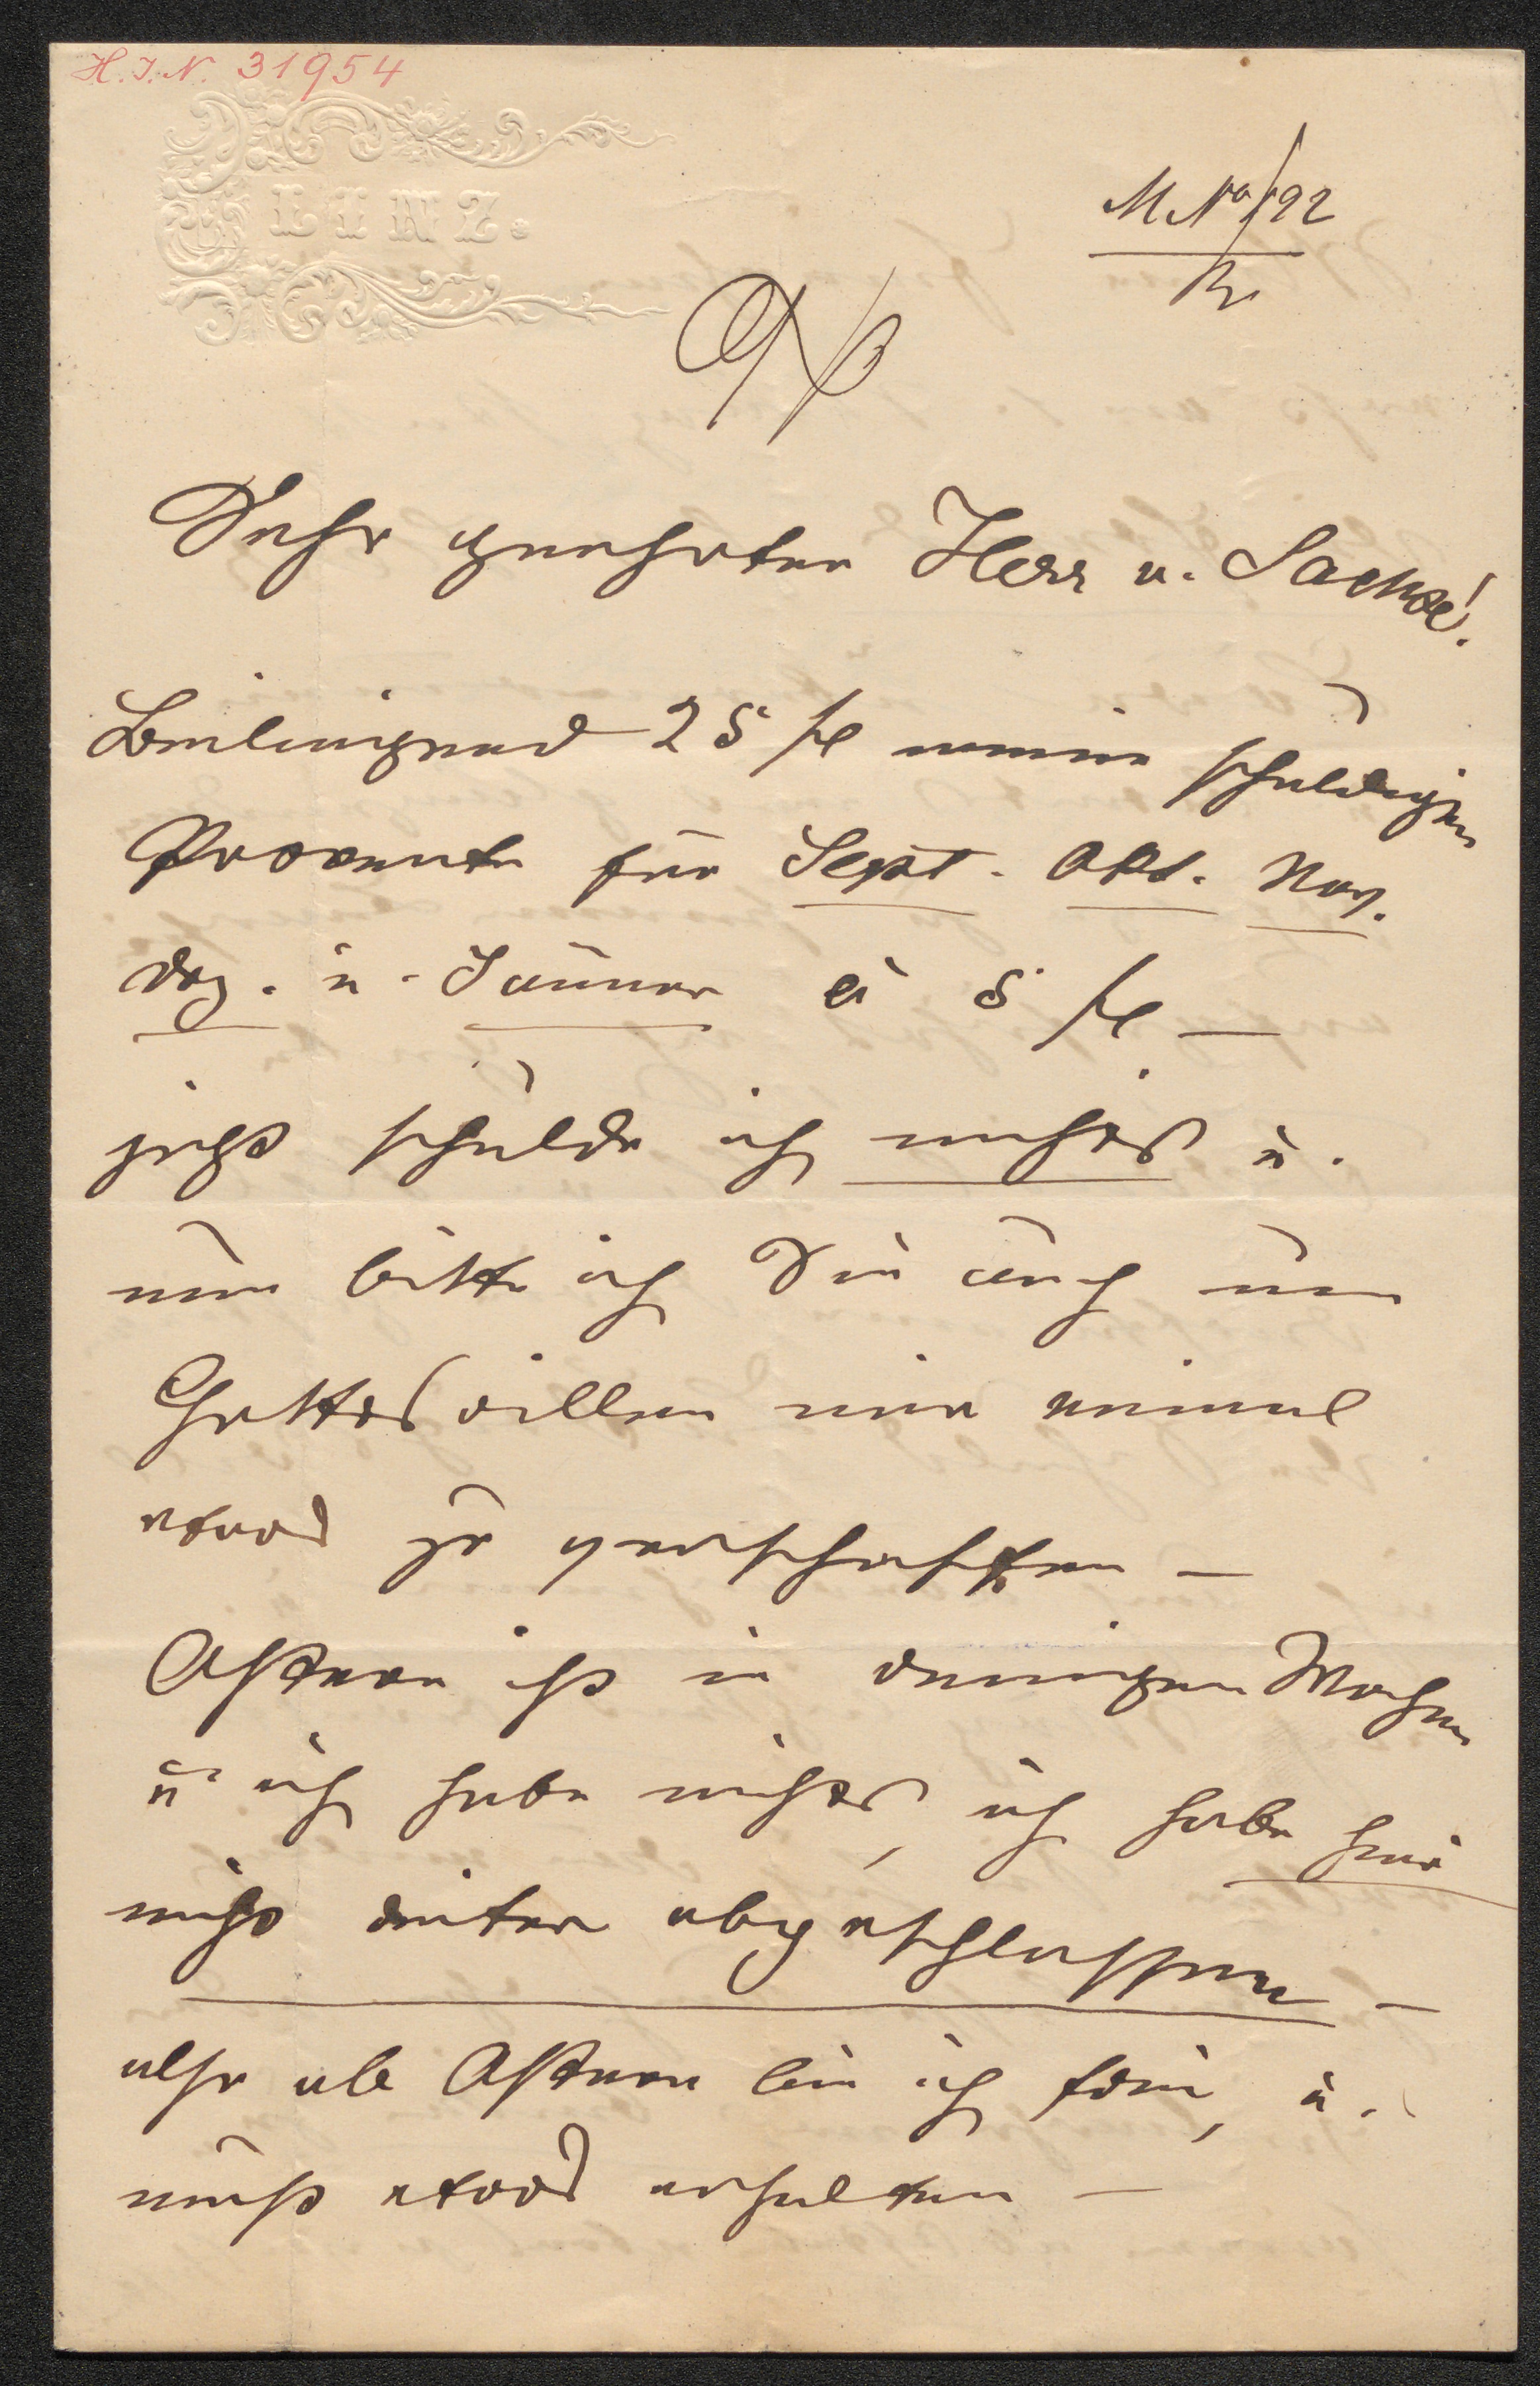 H.I.N. 31954
LINZ.
Sehr geehrter Herr v. Sachse!
Beiliegend 25 fl meine schuldigen
Procente für Sept. Okt. Nov.
Dez. u. Jänner à 5 fl —
jetzt schulde ich nichts u.
nun bitte ich Sie auch um
Gotteswillen mir einmal
etwas zu verschaffen —
Ostern ist in wenigen Wochen
u ich habe nichts, ich habe hier
nicht weiter abgeschlossen —
also ab Ostern bin ich frei, u.
muß etwas erhalten —